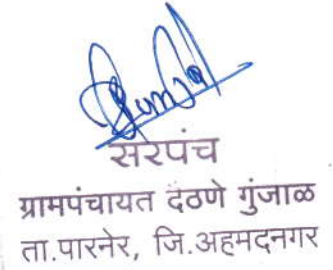 सरपंच
ग्रामपंचायत दैठणे गुंजाळ
ता.पारनेर, जि.अहमदनगर